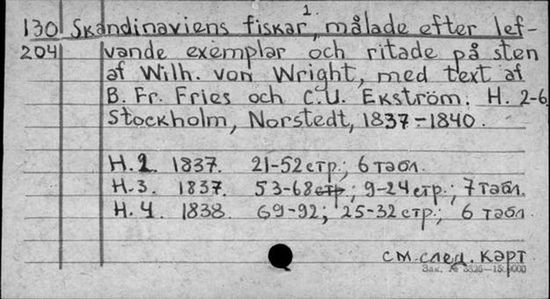 1.
130 Skandinaviens fiskar, målade efter lef-
204 vande exemplar och ritade på sten
af Wilh. von Wright, med text af
B. Fr. Fries och C.U. Ekström. H. 2-6
Stockholm, Norstedt, 1837-1840.
H. 2. 1837. 21-52 стр.; 6 табл.
H. 3. 1837. 53-68 стр; 9-24 стр.; 7 табл.
H. 4. 1838. 69-92; 25-32 стр.; 6 табл.
см. след. карт
Зак. №